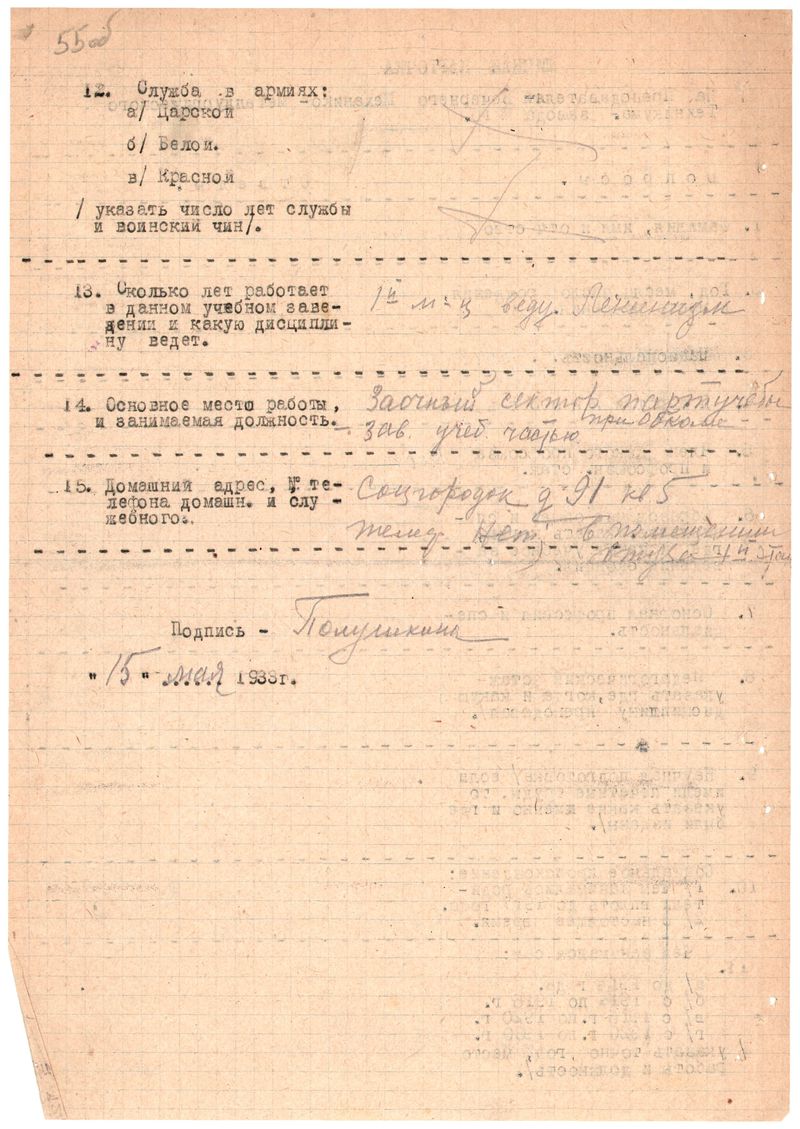 55об
12. Служба в армиях:
а/ Царской
б/ Белой.
в/ Красной
/ указать число лет службы
и воинский чин/.
13. Сколько лет работает
в данном учебном заве-
дении и какую дисципли-
ну ведет.
1й м-ц веду Ленинизм
14. Основное место работы,
и занимаемая должность.
Заочный сектор партучебы
при Обкоме
зав. учеб. частью
15. Домашний адрес, № те-
лефона домашн. и слу -
жебного.
Соцгородок д 91 кв 5
телеф. нет. в помещении
4й этаж
Подпись - Полушкина
"15" мая 1933г.